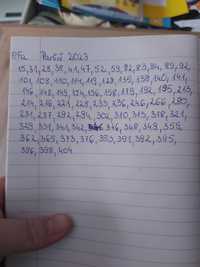 2023
15, 31, 28, 38, 41, 47, 52, 59, 82, 83, 84, 89, 92
101, 108, 110, 114, 119, 129, 135, 138, 140, 141
146, 148, 149, 154, 156, 158, 179, 192, 195, 213
214, 216, 221, 228, 233, 236, 246, 266, 280,
281, 287, 292, 294, 302, 310, 315, 318, 321
329, 331, 341, 342, 346, 348, 349, 355
362, 365, 373, 376, 383, 391, 392, 395,
396, 398, 404